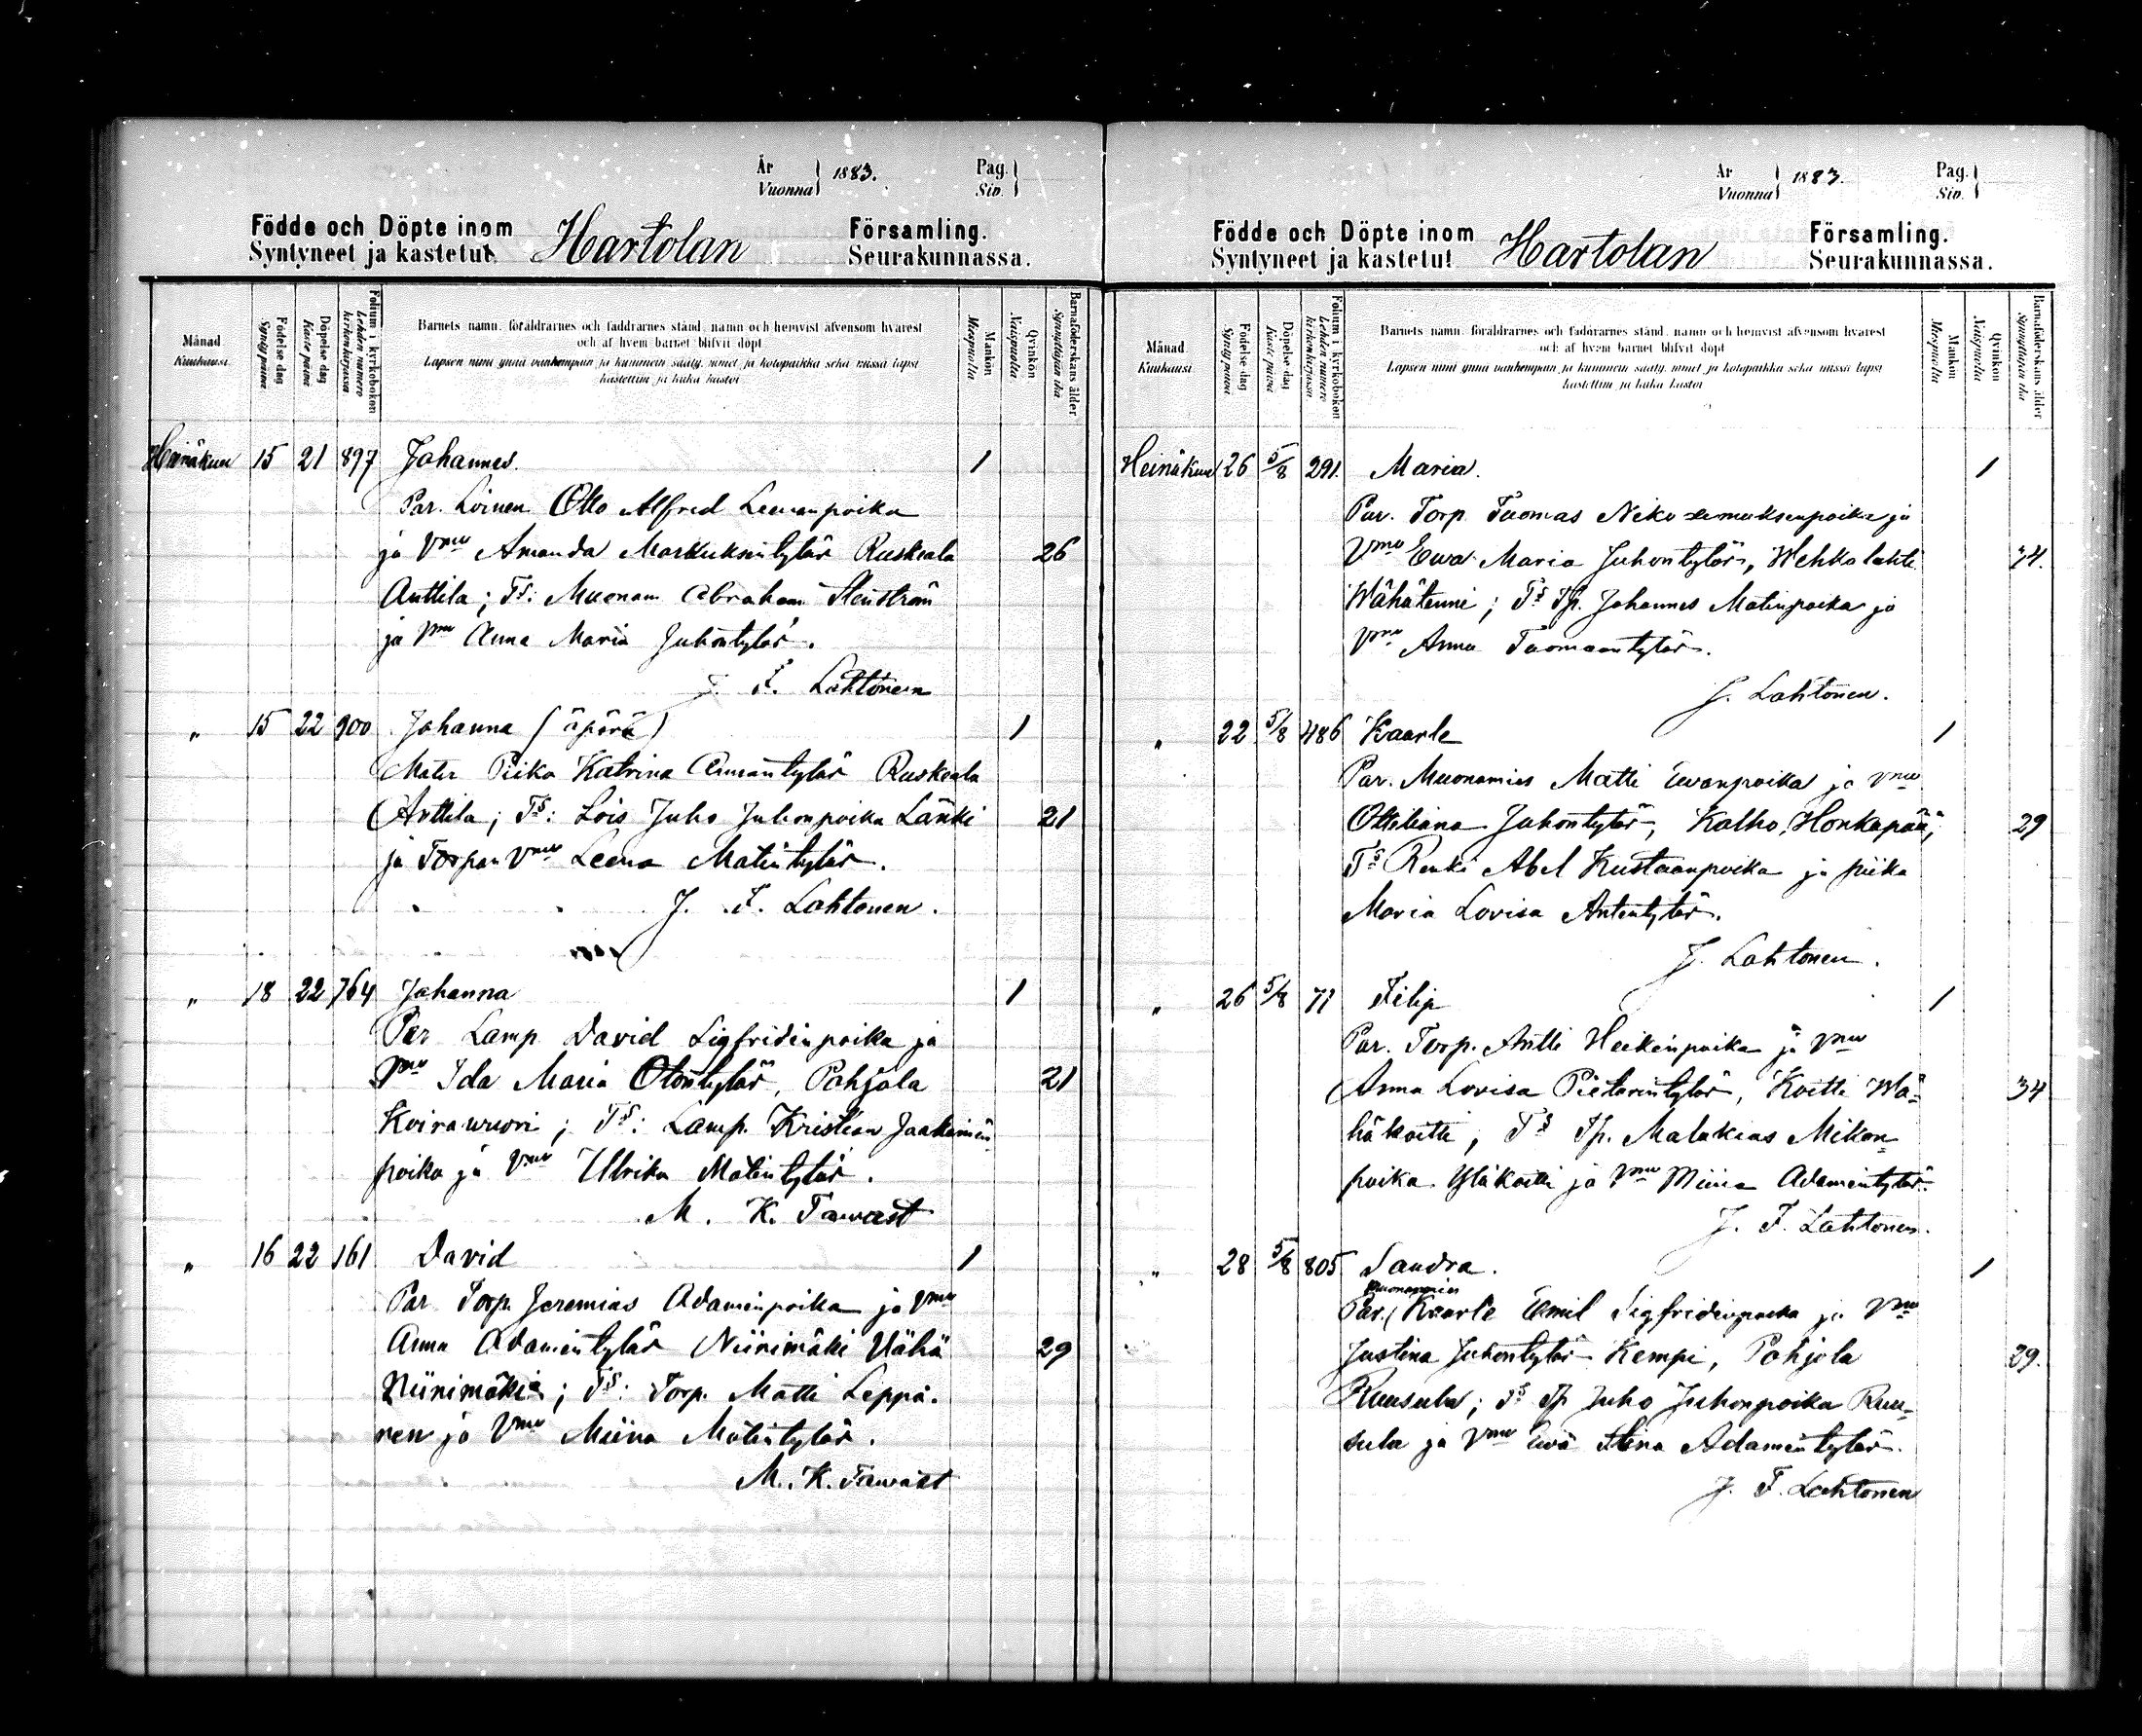 År
Vuonna
1883.
Pag.
Siv.
Födde och Döpte inom
Syntyneet ja kastetut
Hartolan
Församling.
Seurakunnassa.
Månad
Kuukausi
Födelse dag
Syntypäivä
Döpelse dag
Kaste päivä
Folium i kyrkoboken
Lehden numero
kirkonkirjassa
Barnets namn, föräldrarnes och faddrarnes stånd, namn och hemvist äfvensom hvarest
och af hvem barnet blifvit döpt
Lapsen nimi ynnä vanhempain ja kummein sääty, nimet ja kotopaikka sekä missä lapsi
kastettiin ja kuka kastoi
Mankön
Miespuolia
Qvinkön
Naispuolia
Barnaföderskans ålder
Synnyttäjän ikä
Heinäkuu 15 21 897 Johannes. 1
Par. Loinen Otto Alfred Leenanpoika
ja Vmo Amanda Markuksentytär Ruskeala 26
Anttila; Ts: Muonam Abraham Stenström
ja Vmo Anna Maria Juhontytär.
J. F. Lahtonen
" 15 22 900 Johanna (äpärä) 1
Mater Piika Katrina Annantytär Ruskeala
Anttila; Ts: Lois Juho Juhonpoika Länki 21
ja Torpan Vmo Leena Matintytär.
J. F. Lahtonen.
" 18 22 764 Johanna 1
Par Lamp David Sigfridinpoika ja
Vmo Ida Maria Otontytär, Pohjola 21
Koirawuori; Ts: Lamp. Kristian Jaakimin-
poika ja Vmo Ulrika Matintytär.
M. K. Tawast
" 16 22 161 David 1
Par Torp. Jeremias Adaminpoika ja Vmo
Anna Adamintytär Niinimäki Vähä 29
Niinimäki; Ts: Torp. Matti Leppä-
nen ja Vmo Miina Matintytär.
M. K. Tawast
År
Vuonna
1883.
Pag.
Siv.
Födde och Döpte inom
Syntyneet ja kastetut
Hartolan
Församling.
Seurakunnassa.
Månad
Kuukausi
Födelse dag
Syntypäivä
Döpelse dag
Kaste päivä
Folium i kyrkoboken
Lehden numero
kirkonkirjassa
Barnets namn, föräldrarnes och fadörarnes stånd, namn och hemvist äfvensom hvarest
och af hvem barnet blifvit döpt
Lapsen nimi ynnä vanhempain ja kummein sääty, nimet ja kotopaikka sekä missä lapsi
kastettiin ja kuka kastoi
Mankön
Miespuolia
Qvinkön
Naispuolia
Barnaföderskans ålder
Synnyttäjän ikä
Heinäkuu 26 5/8 291. Maria. 1
Par. Torp. Tuomas Nikodemuksenpoika ja
Vmo Ewa Maria Juhontytär, Wehkalahti 34.
Wähätenni; Ts Tp. Johannes Matinpoika ja
Vmo Anna Tuomaantytär.
J. Lahtonen.
" 22 5/8 486 Kaarle 1
Par. Muonamies Matti Ewanpoika ja Vmo
Ottiliana Juhontytär, Kalho, Honkapää; 29
Ts Renki Abel Kustaanpoika ja piika
Maria Lovisa Antintytär.
J. Lahtonen.
" 26 5/8 71 Filip 1
Par. Torp. Antti Heikinpoika ja Vmo
Anna Lovisa Pietarintytär, Koitti Wä- 34
häkoitti; Ts Tp. Malakias Mikon-
poika Yläkoitti ja Vmo Miina Adamintytär.
J. F. Lahtonen.
" 28 5/8 805 Sandra. 1
muonamies
Par. Kaarle Emil Sigfridinpoika ja Vmo
Justina Juhontytär Kempi, Pohjola 29.
Ruusula; Ts Tp Juho Juhonpoika Ruu-
sula ja Vmo Ewa Stina Adamintytär.
J. F. Lahtonen